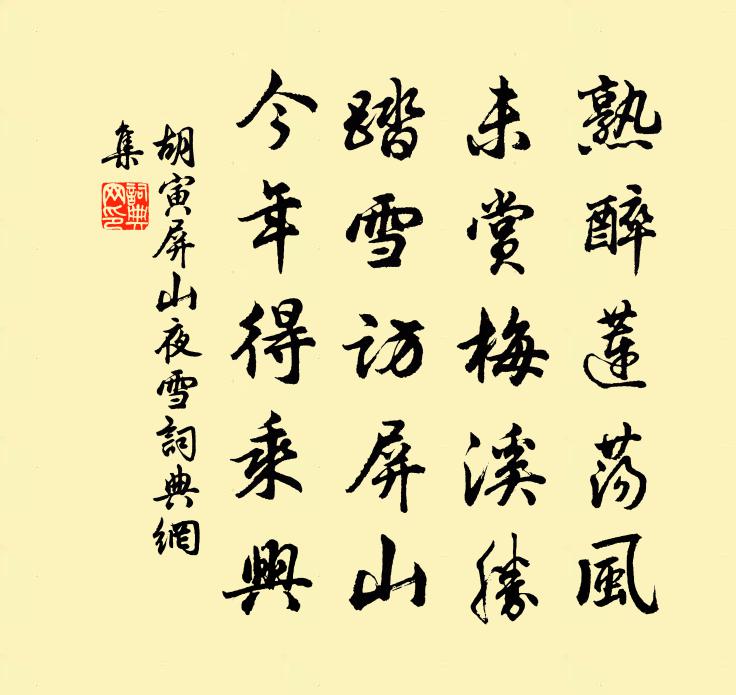 熟醉蓮蕩風
未賞梅溪勝
踏雪訪屏山
今年得乘興
胡寅屏山夜雪詞典網
集
詞典網印